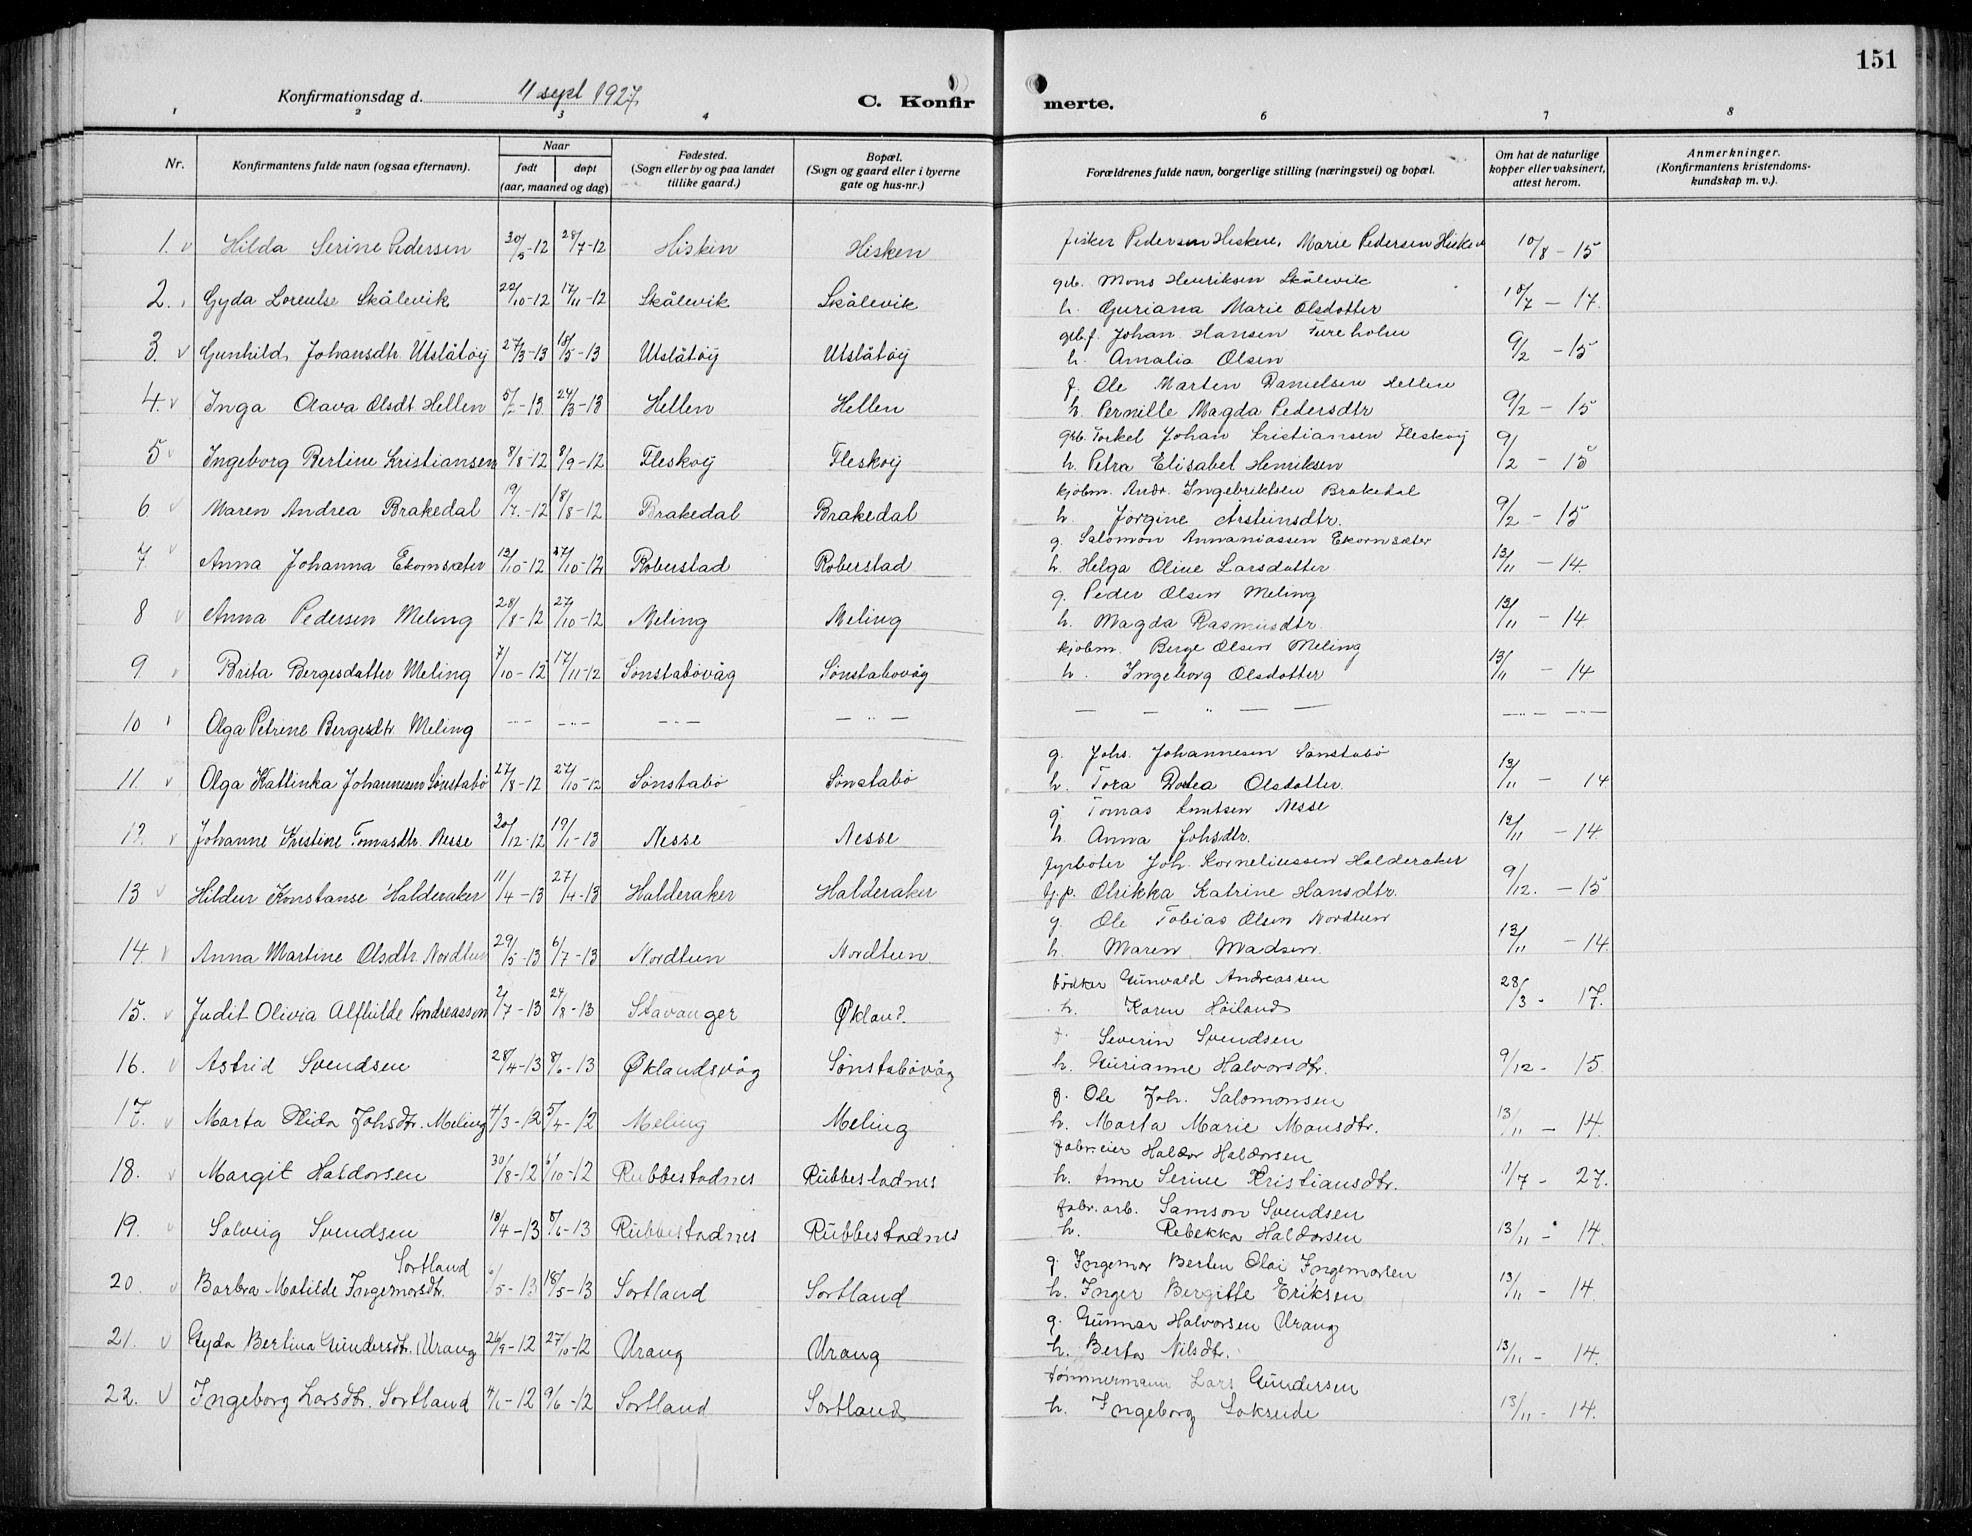 151
Konfirmationsdag d. 11 sept 1927.
C. Konfir merte.
1 2 3 4 6 7 8
Nr. Konfirmantens fulde navn (ogsaa efternavn). Naar født døpt (aar, maaned og dag) Fødested. (Sogn eller by og paa landet tillike gaard.) Bopæl. (Sogn og gaard eller i byerne gate og hus-nr.) Forældrenes fulde navn, borgerlige stilling (næringsvei) og bopæl. Om hat de naturlige kopper eller vaksinert, attest herom. Anmerkninger. (Konfirmantens kristendomskundskap m. v.).
1. v Hilda Serine Pedersen 30/5-12 28/7-12 Hiskin Hisken fisker Pedersen Heskene, Marie Pedersen Hisken 10/8-15
2. Gyda Lorentse Skålevik 22/10-12 17/11-12 Skålevik Skålevik grb. Mons Henriksen Skålevik
h. Guriana Marie Olsdotter 18/7-17.
3. v Gunhild Johansdtr. Utslåtøy 27/3-13 18/5-13 Utslåtøy Utslåtøy grb.f. Johan Hansen Fureholm
h. Amalia Olsen 9/2-15
4. v Inga Olava Olsdt Hellen 5/2-13 24/3-13 Hellen Hellen f. Ole Marten Danielsen Hellen
h. Pernille Magda Pedersdtr 9/2-15
5 v Ingeborg Bertine Kristiansen 8/8-12 8/9-12 Fleskøy Fleskøy grb. Torkel Johan Kristiansen Fleskøy
h. Petra Elisabet Henriksen 9/2-15
6. v Maren Andrea Brakedal 19/7-12 18/8-12 Brakedal Brakedal kjøbm. Andr. Ingebriktsen Brakedal
h. Jørgine Arsteinsdtr. 9/2-15
7 v Anna Johanna Ekornsæter 13/10-12 27/10-12 Roberstad Roberstad g. Salomon Annaniassen Ekornsæter
h. Helga Oline Larsdatter 13/11-14.
8 v Anna Pedersen Meling 28/8-12 27/10-12 Meling Meling g. Peder Olsen Meling
h. Magda Rasmusdtr. 13/11-14.
9. v Brita Bergesdatter Meling 7/10-12 17/11-12 Sønstabøvåg Sønstabøvåg kjøbm. Berge Olsen Meling
h. Ingeborg Olsdotter 13/11-14
10 Olga Petrine Bergesdtr. Meling -"- -"- -"- -"- — — " — — -"-
11. v Olga Kattinka Johannesen Sønstabø 27/8-12 27/10-12 Sønstabø Sønstabø g. Johs. Johannesen Sønstabø
h. Tora Dorlea Olsdotter. 13/11-14
12. v Johanne Kristine Tomasdtr. Nesse 20/12-12 19/1-13 Nesse Nesse g. Tomas Knutsen Nesse
h. Anna Johsdtr. 13/11-14
13 v Hildur Konstanse Halderaker 11/4-13 27/4-13 Halderaker Halderaker fyrbøter Joh. Korneliussen Halderaker
Olrikka Katrine Hansdtr. 9/12.-15
14. v Anna Martine Olsdtr. Nordtun 29/5-13 6/7-13 Nordtun Nordtun g. Ole Tobias Olsen Nordtun
h. Maren Madsen. 13/11-14.
15. v Judit Olivia Alfhilde Andreassen 2/7-13 24/8-13 Stavanger Økland. bødker Gunvald Andreassen
h. Karen Høiland 28/3-17.
16. v Astrid Svendsen 28/4-13 8/6-13 Øklandsvåg Sønstabøvåg f. Severin Svendsen
h. Gurianne Halvorsdtr. 9/12-15.
17. v Marta Olida Johsdtr. Meling 4/3-12 5/4-12 Meling Meling g. Ole Joh. Salomonsen
h. Marta Marie Monsdtr. 13/11-14.
18. v Margit Haldorsen 30/8-12 6/10-12 Rubbestadnes Rubbestadnes fabr.eier Haldor Haldorsen
h. Anne Serine Kristiansdtr. 1/7-27.
19. v Solveig Svendsen 18/4-13 8/6-13 Rubbestadnes Rubbestadnes fabr.arb. Samson Svendsen
h. Rebekka Haldorsen 13/11-14.
20. v Barbra Matilde Ingemorsdtr. Sortland 6/5-13 18/5-13 Sortland Sortland g. Ingemor Berten Olai Ingemorsen
h. Inger Bergitte Eriksen 13/11-14.
21. v Gyda Bertina Gundersdtr. Urang 26/9-12 27/10-12 Urang Urang g. Gunnar Halvorsen Urang
h. Berta Nilsdtr. 13/11-14.
22. v Ingeborg Larsdtr. Sortland 4/1-12 9/6-12 Sortland Sortland tømmermann Lars Gundersen
h. Ingeborg Lokseide 13/11-14.